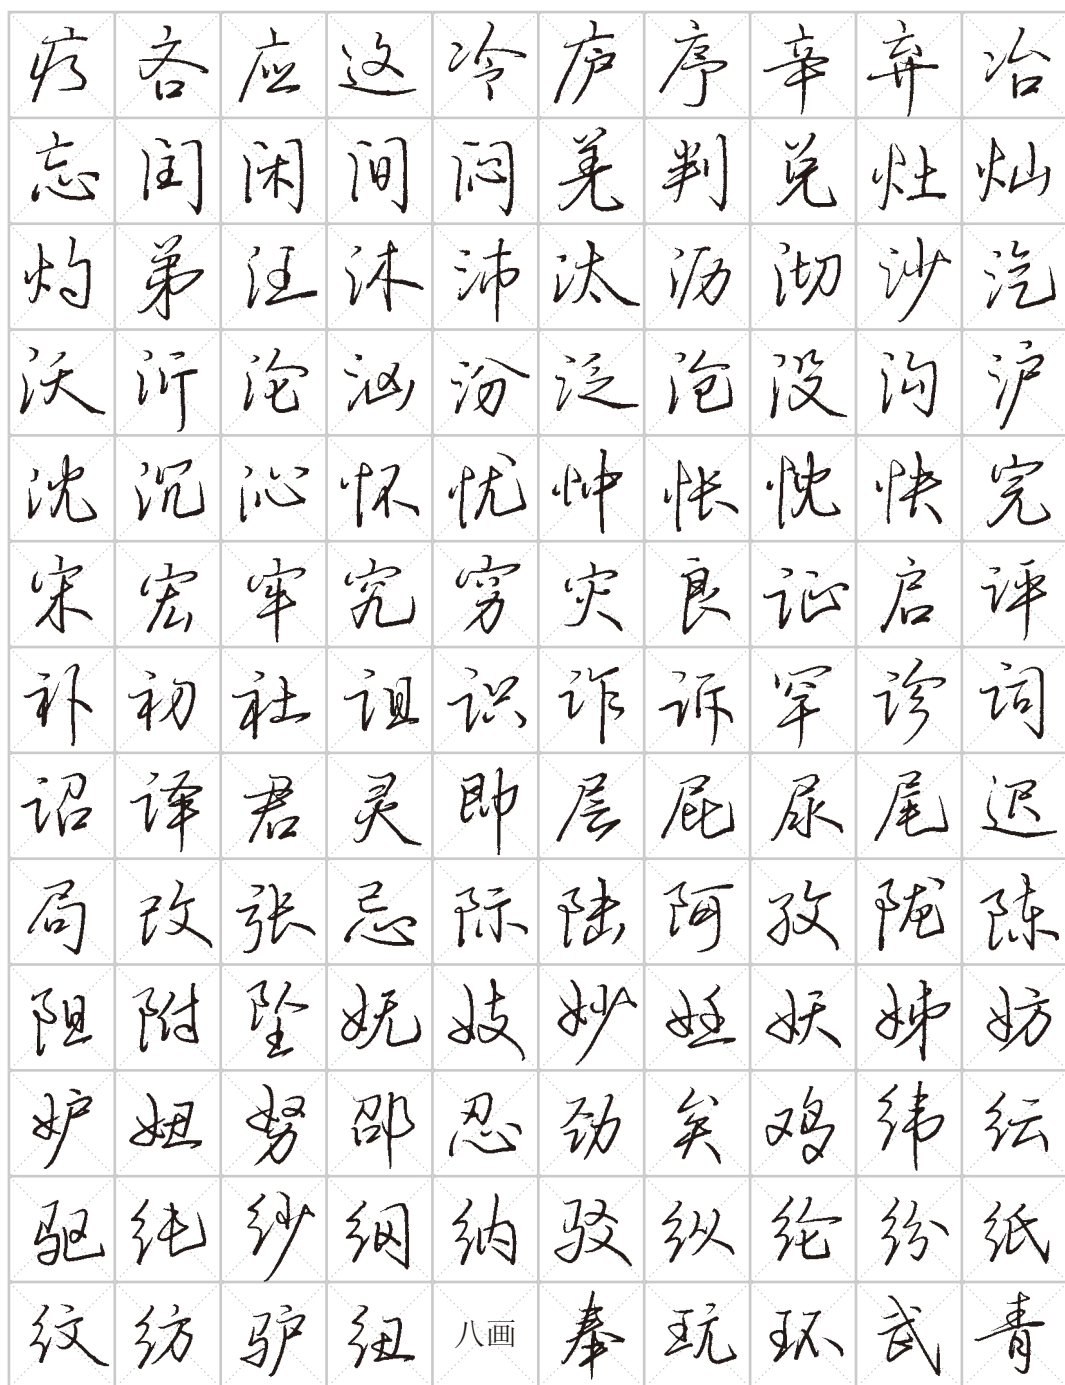 疗吝应这冷庐序辛弃冶
忘闰闲间闷羌判兑灶灿
灼弟汪沐沛汰沥沏沙汽
沃沂沦汹汾泛沧没沟沪
沈沉沁怀忧忡怅忱快完
宋宏牢究穷灾良证启评
补初社诅识诈诉罕诊词
诏译君灵即层屁尿尾迟
局改张忌际陆阿孜陇陈
阻附坠妩妓妙妊妖姊妨
妒妞努邵忍劲矣鸡纬纭
驱纯纱纲纳驳纵纶纷纸
纹纺驴纽八画奉玩环武青